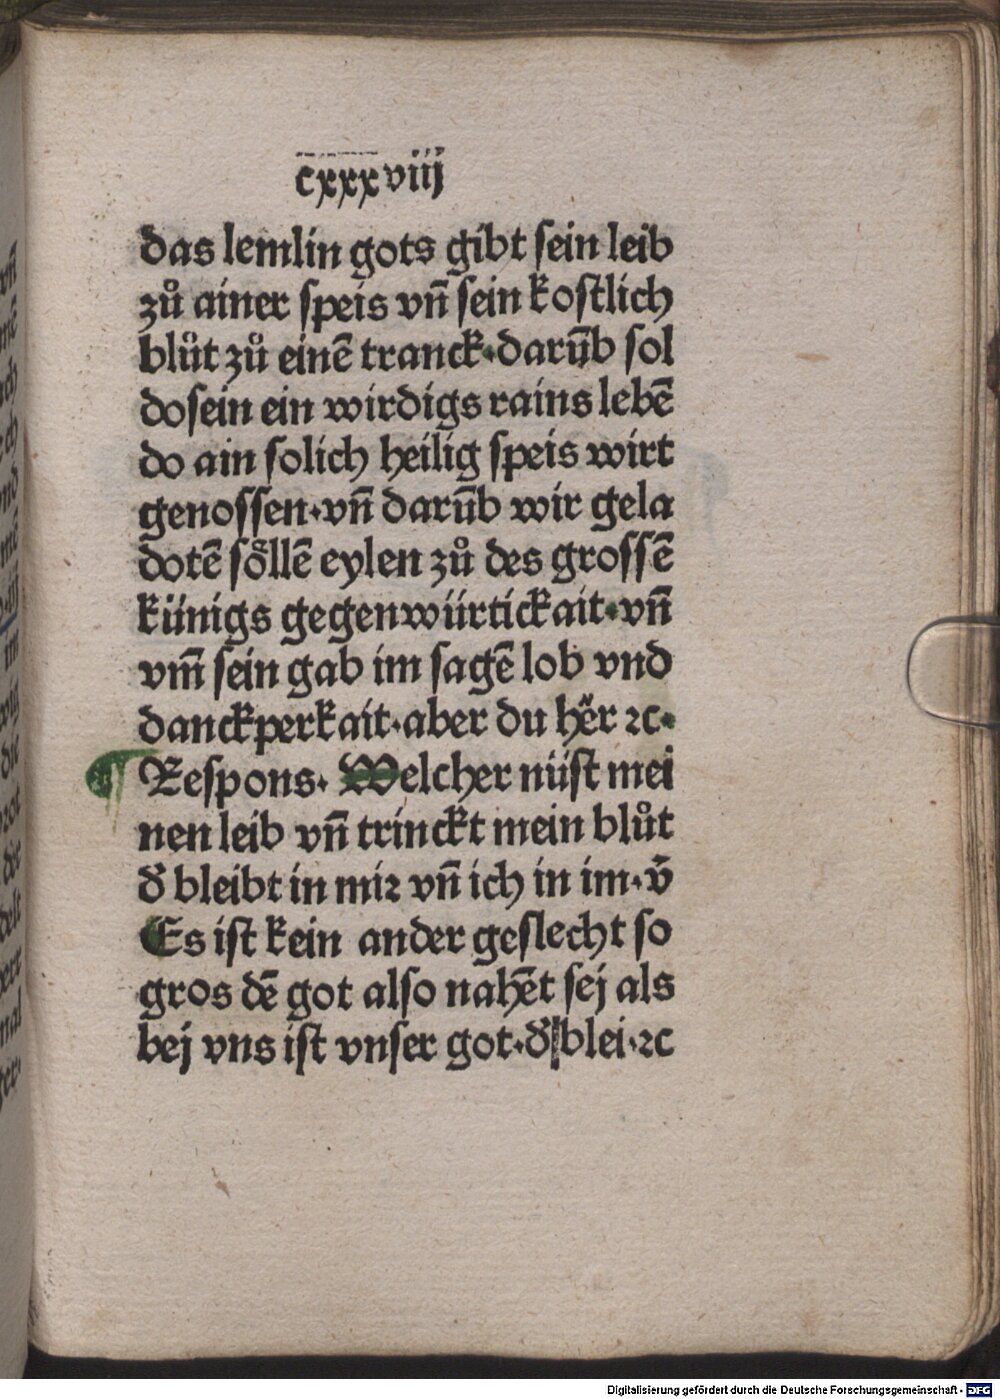 cxxxviij
das lemlin gots gibt sein leib
zů ainer speis vñ sein kostlich
blůt zů einē tranck·darūb sol
dosein ein wirdigs rains lebē
do ain solich heilig speis wirt
genossen·vñ darūb wir gela
dotē sőllē eylen zů des grossē
künigs gegenwürtickait·vñ
vm̄ sein gab im sagē lob vnd
danckperkait·aber du hēr ꝛc·
¶ Respons· Welcher nüst mei
nen leib vñ trinckt mein blůt
d̄ bleibt in miꝛ vñ ich in im·v̄
Es ist kein ander geslecht so
gros dē got also nahēt sej als
bej vns ist vnser got·d̄ blei·ꝛc
Digitalisierung gefördert durch die Deutsche Forschungsgemeinschaft - DFG